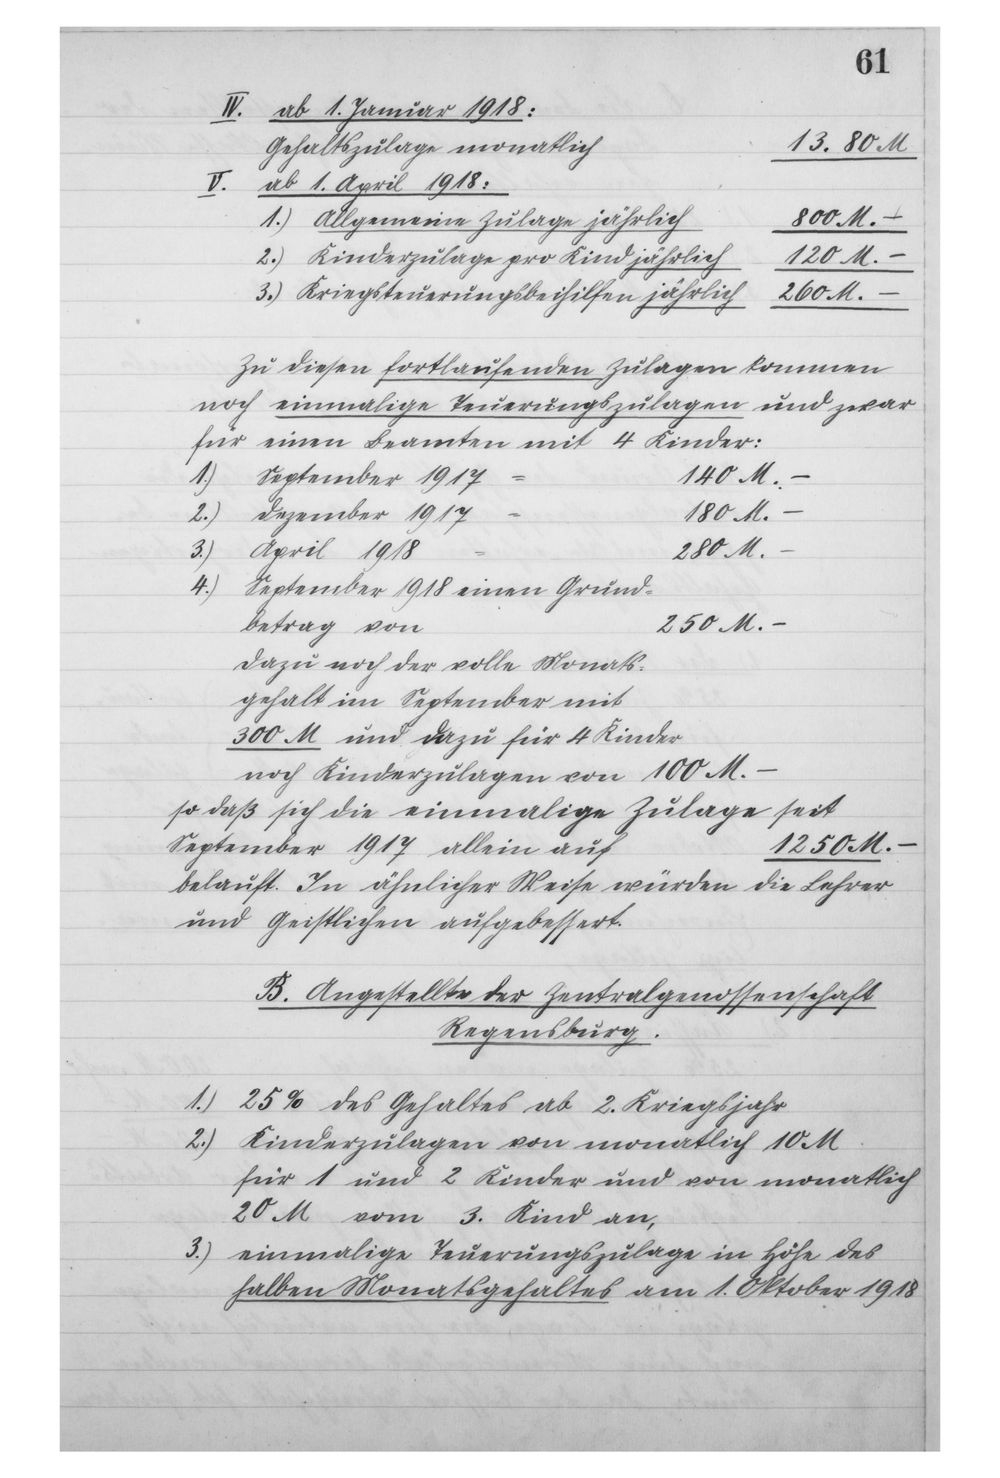 61
IV. ab 1. Januar 1918:
Gehaltszulage monatlich 13.80 M
V. ab 1. April 1918:
1.) Allgemeine Zulage jährlich 800 M.-
2.) Kinderzulage pro Kind jährlich 120 M.-
3.) Kriegsteuerungsbeihilfen jährlich 260 M.-
Zu diesen fortlaufenden Zulagen kommen
noch einmalige Teuerungszulagen und zwar
für einen Beamten mit 4 Kinder:
1.) September 1917 = 140 M.-
2.) Dezember 1917 = 180 M.-
3.) April 1918 = 280 M.-
4.) September 1918 einen Grund-
betrag von 250 M.-
dazu noch der volle Monats-
gehalt im September mit
300 M und dazu für 4 Kinder
noch Kinderzulagen von 100 M.-
so daß sich die einmalige Zulage seit
September 1917 allein auf 1250 M.-
belauft. In ähnlicher Weise würden die Lehrer
und Geistlichen aufgebessert.
B. Angestellte der Zentralgenossenschaft
Regensburg.
1.) 25% des Gehaltes ab 2. Kriegsjahr
2.) Kinderzulagen von monatlich 10 M
für 1 und 2 Kinder und von monatlich
20 M vom 3. Kind an,
3.) einmalige Teuerungszulage in Höhe des
halben Monatsgehaltes am 1. Oktober 1918